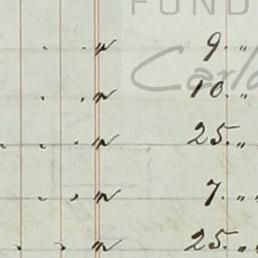 FUND
. . " 9. "
Carlo
. . " 10. "
. . . " 25. "
. . " 7. "
. . " 25. "